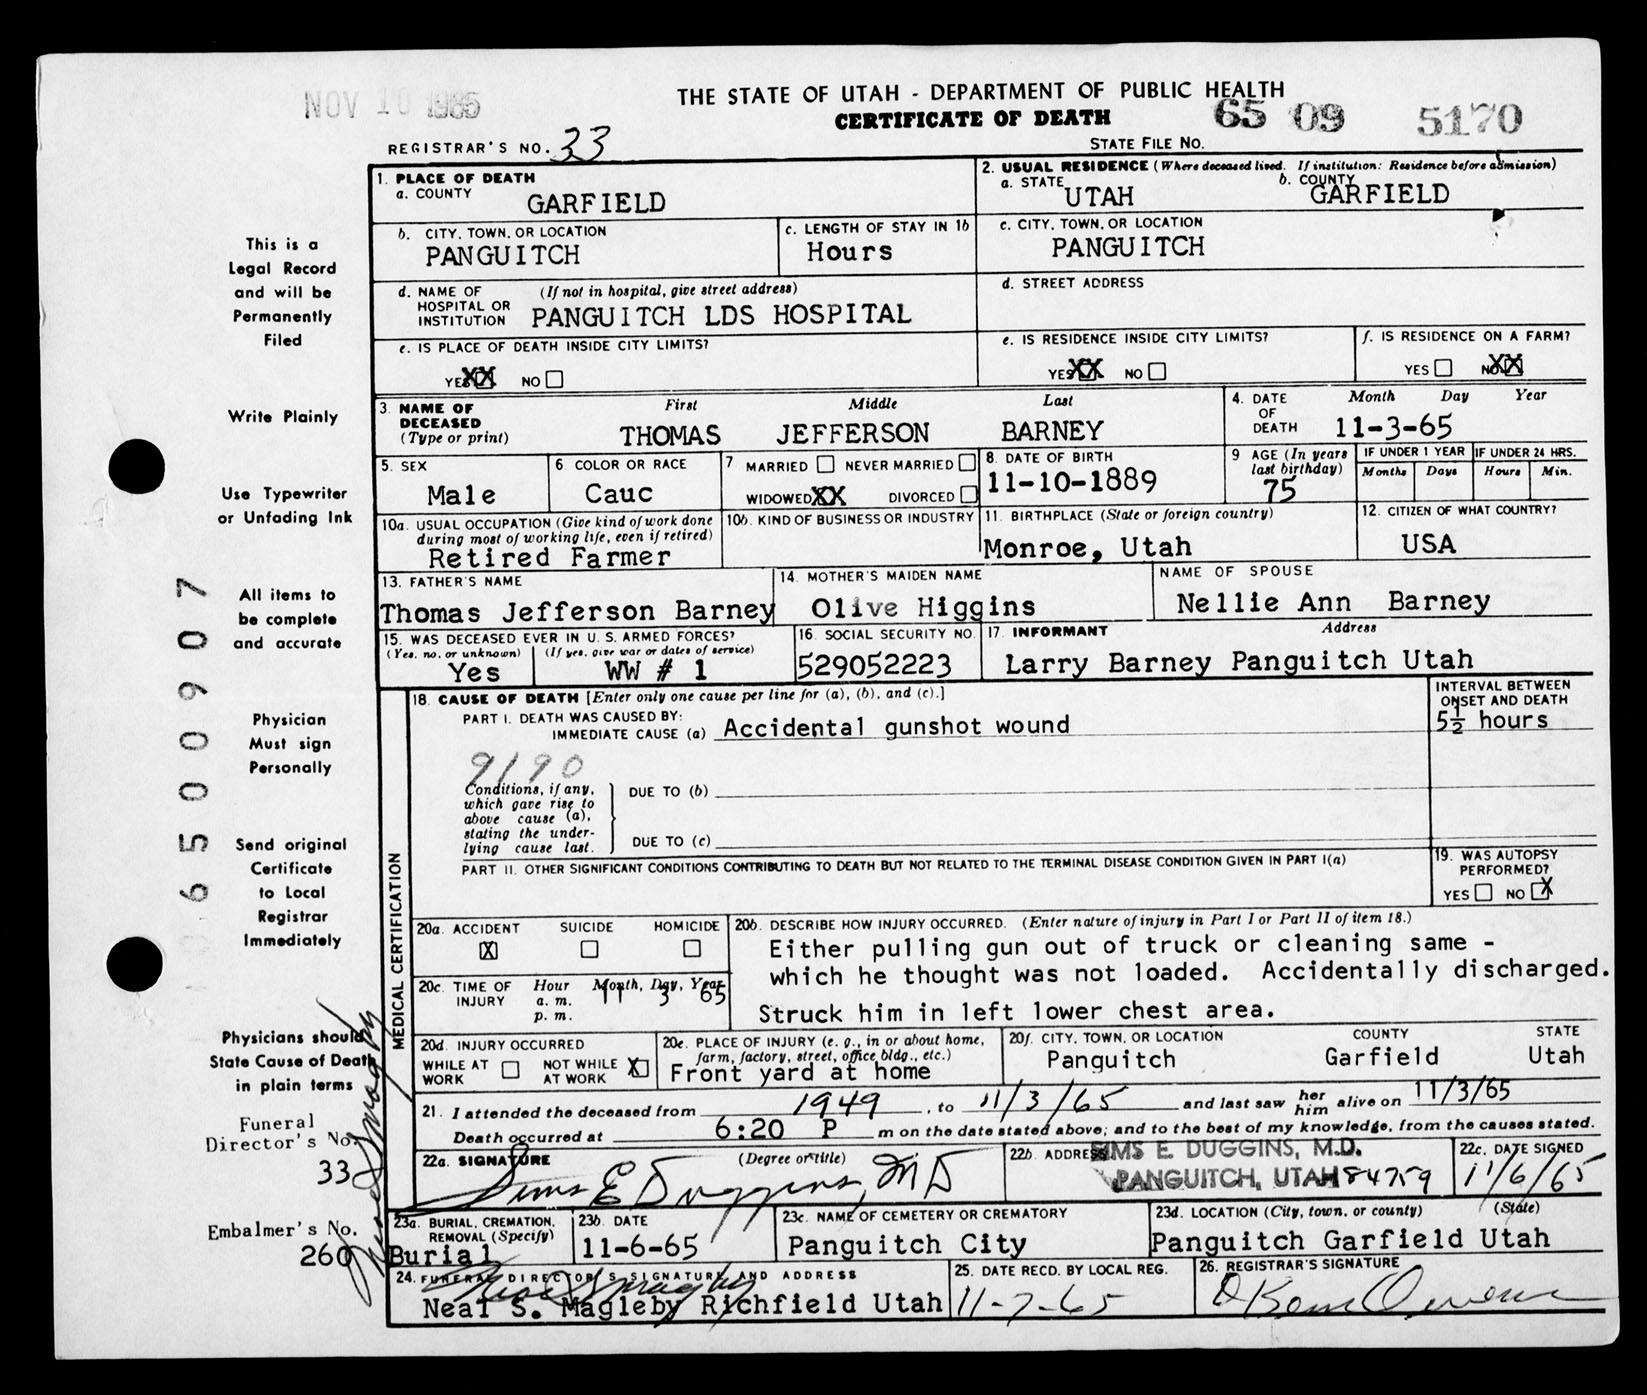 NOV 10 1965
THE STATE OF UTAH - DEPARTMENT OF PUBLIC HEALTH
CERTIFICATE OF DEATH
65 09 5170
REGISTRAR'S NO. 33
STATE FILE NO.
This is a
Legal Record
and will be
Permanently
Filed
Write Plainly
Use Typewriter
or Unfading Ink
All items to
be complete
and accurate
Physician
Must sign
Personally
Send original
Certificate
to Local
Registrar
Immediately
Physicians should
State Cause of Death
in plain terms
Funeral
Director's No.
33
Embalmer's No.
260
6500907
1. PLACE OF DEATH
a. COUNTY GARFIELD
2. USUAL RESIDENCE (Where deceased lived. If institution: Residence before admission)
a. STATE UTAH b. COUNTY GARFIELD
b. CITY, TOWN, OR LOCATION PANGUITCH
c. LENGTH OF STAY IN 1b Hours
c. CITY, TOWN, OR LOCATION PANGUITCH
d. NAME OF HOSPITAL OR INSTITUTION (If not in hospital, give street address) PANGUITCH LDS HOSPITAL
d. STREET ADDRESS
e. IS PLACE OF DEATH INSIDE CITY LIMITS?
YES XX NO
e. IS RESIDENCE INSIDE CITY LIMITS?
YES XX NO
f. IS RESIDENCE ON A FARM?
YES NO XX
3. NAME OF DECEASED (Type or print) First Middle Last
THOMAS JEFFERSON BARNEY
4. DATE OF DEATH Month Day Year
11-3-65
5. SEX Male
6 COLOR OR RACE Cauc
7 MARRIED NEVER MARRIED
WIDOWED XX DIVORCED
8. DATE OF BIRTH 11-10-1889
9 AGE (In years last birthday) 75
IF UNDER 1 YEAR Months Days
IF UNDER 24 HRS. Hours Min.
10a. USUAL OCCUPATION (Give kind of work done during most of working life, even if retired)
Retired Farmer
10b. KIND OF BUSINESS OR INDUSTRY
11. BIRTHPLACE (State or foreign country)
Monroe, Utah
12. CITIZEN OF WHAT COUNTRY?
USA
13. FATHER'S NAME
Thomas Jefferson Barney
14. MOTHER'S MAIDEN NAME
Olive Higgins
NAME OF SPOUSE
Nellie Ann Barney
15. WAS DECEASED EVER IN U. S. ARMED FORCES?
(Yes, no, or unknown) (If yes, give war or dates of service)
Yes WW # 1
16. SOCIAL SECURITY NO.
529052223
17. INFORMANT Address
Larry Barney Panguitch Utah
MEDICAL CERTIFICATION
18. CAUSE OF DEATH [Enter only one cause per line for (a), (b), and (c).]
PART I. DEATH WAS CAUSED BY:
IMMEDIATE CAUSE (a) Accidental gunshot wound
INTERVAL BETWEEN ONSET AND DEATH
5½ hours
9190
Conditions, if any, which gave rise to above cause (a), stating the underlying cause last.
DUE TO (b)
DUE TO (c)
PART II. OTHER SIGNIFICANT CONDITIONS CONTRIBUTING TO DEATH BUT NOT RELATED TO THE TERMINAL DISEASE CONDITION GIVEN IN PART I(a)
19. WAS AUTOPSY PERFORMED?
YES NO X
20a. ACCIDENT SUICIDE HOMICIDE
X
20b. DESCRIBE HOW INJURY OCCURRED. (Enter nature of injury in Part I or Part II of item 18.)
Either pulling gun out of truck or cleaning same -
which he thought was not loaded. Accidentally discharged.
Struck him in left lower chest area.
20c. TIME OF INJURY Hour a. m. p. m. Month, Day, Year
11 3 65
20d. INJURY OCCURRED
WHILE AT WORK NOT WHILE AT WORK X
20e. PLACE OF INJURY (e. g., in or about home, farm, factory, street, office bldg., etc.)
Front yard at home
20f. CITY, TOWN, OR LOCATION COUNTY STATE
Panguitch Garfield Utah
21. I attended the deceased from 1949, to 11/3/65 and last saw her him alive on 11/3/65
Death occurred at 6:20 P m on the date stated above; and to the best of my knowledge, from the causes stated.
22a. SIGNATURE (Degree or title)
Sims E Duggins, MD
22b. ADDRESS SIMS E. DUGGINS, M.D.
PANGUITCH, UTAH 84759
22c. DATE SIGNED
11/6/65
23a. BURIAL, CREMATION, REMOVAL (Specify)
Burial
23b. DATE
11-6-65
23c. NAME OF CEMETERY OR CREMATORY
Panguitch City
23d. LOCATION (City, town, or county) (State)
Panguitch Garfield Utah
24. FUNERAL DIRECTOR'S SIGNATURE AND ADDRESS
Neal S Magleby
Neal S. Magleby Richfield Utah
25. DATE RECD. BY LOCAL REG.
11-7-65
26. REGISTRAR'S SIGNATURE
Neal S Magleby